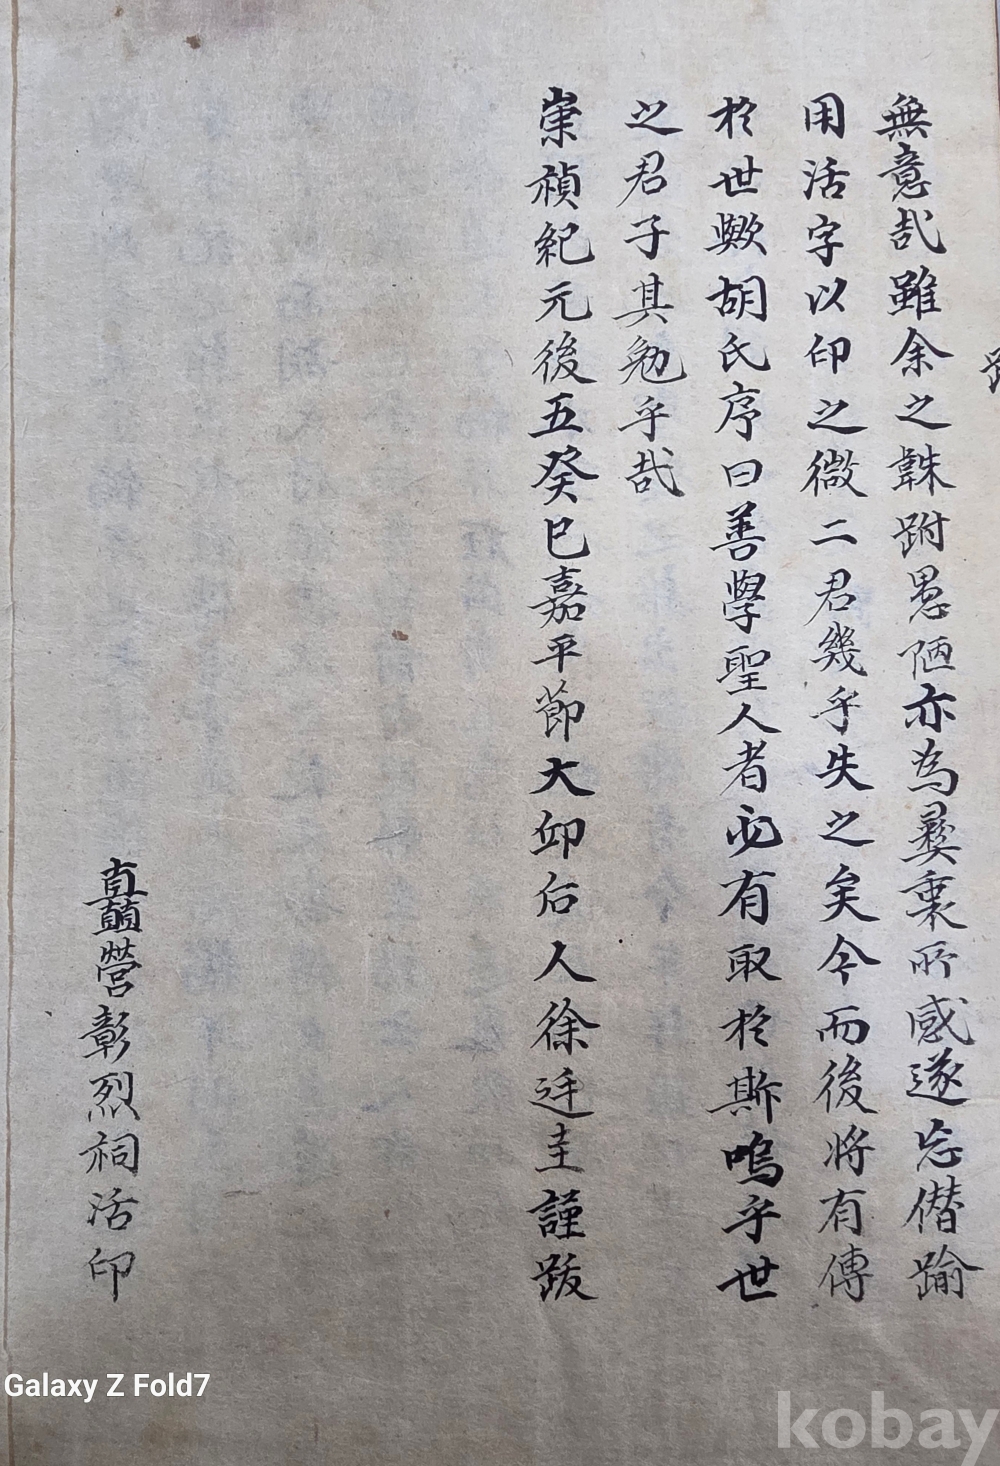 無意哉雖余之韎跗愚陋亦為彛衷所感遂忘僣踰
用活字以印之微二君幾乎失之矣今而後將有傳
於世歟胡氏序曰善學聖人者必有取於斯嗚乎世
之君子其勉乎哉
崇禎紀元後五癸巳嘉平節大邱后人徐廷圭謹跋
矗營彰烈祠活印
Galaxy Z Fold7
kobay